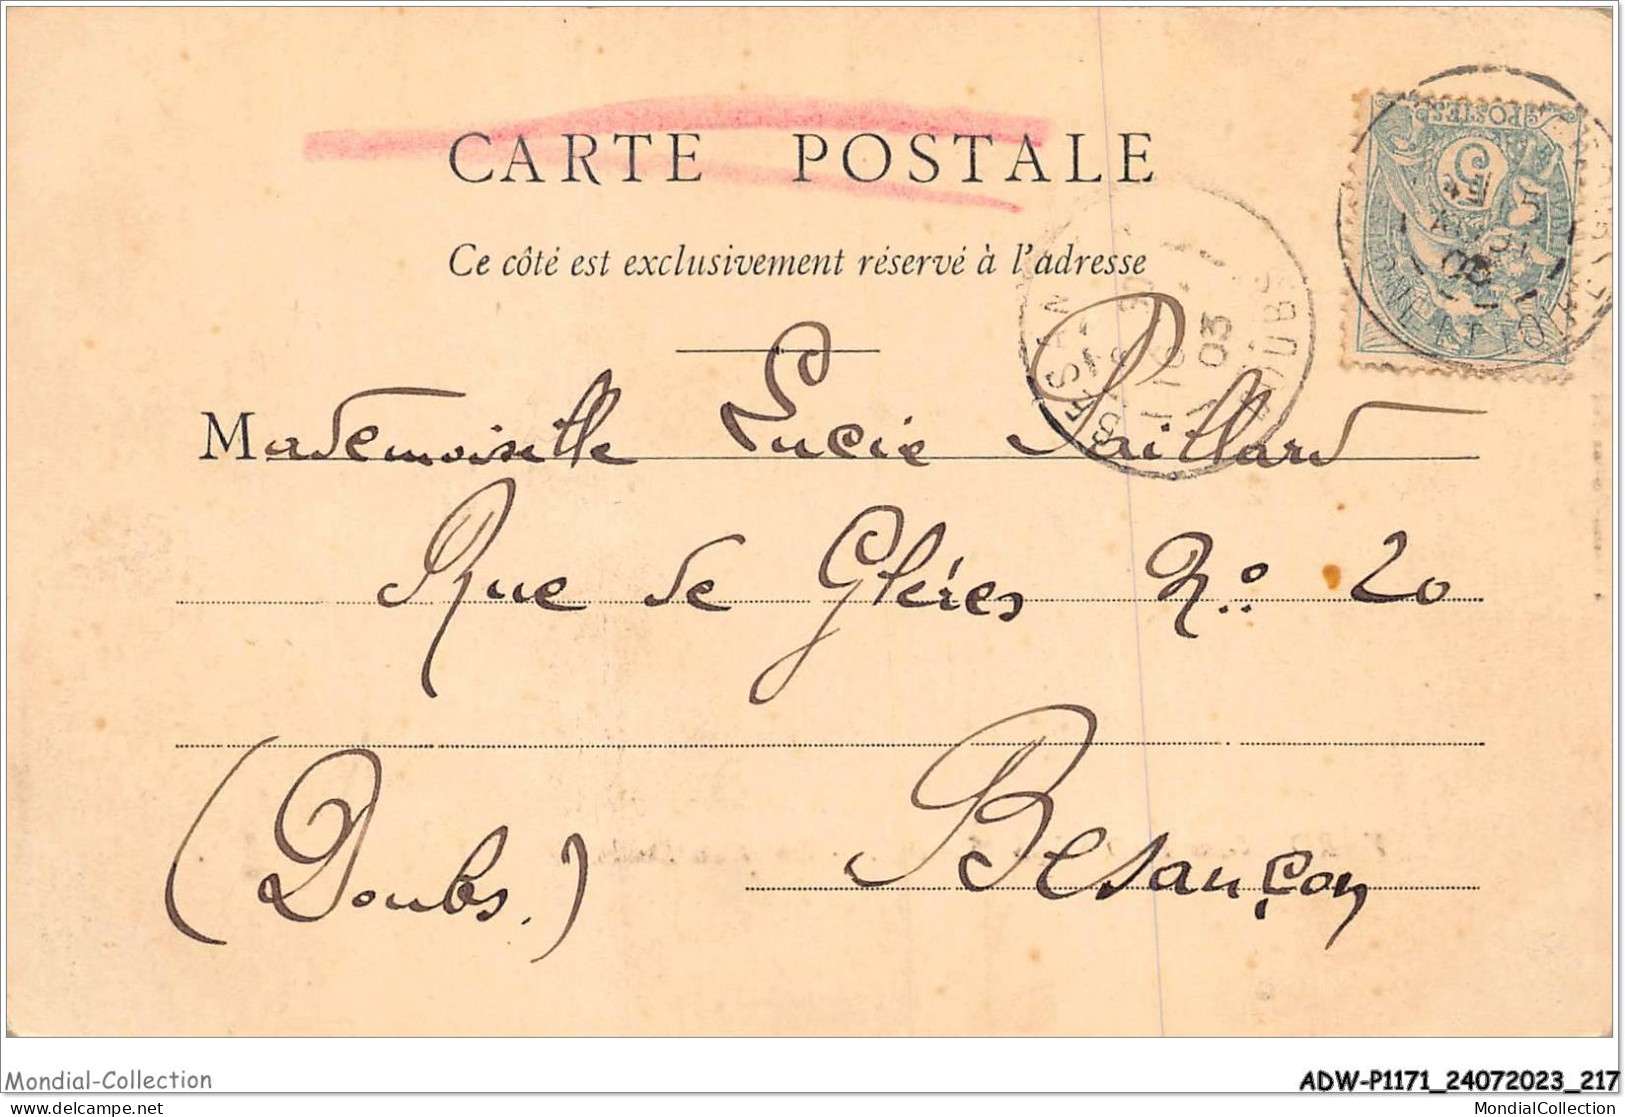 CARTE POSTALE
Ce côté est exclusivement réservé à l'adresse
POSTES
5
03
Mademoiselle Lucie Paillard
Rue de Glères N.º 20
Besançon
(Doubs.)
Mondial-Collection
ADW-P1171_24072023_217
www.delcampe.net
MondialCollection